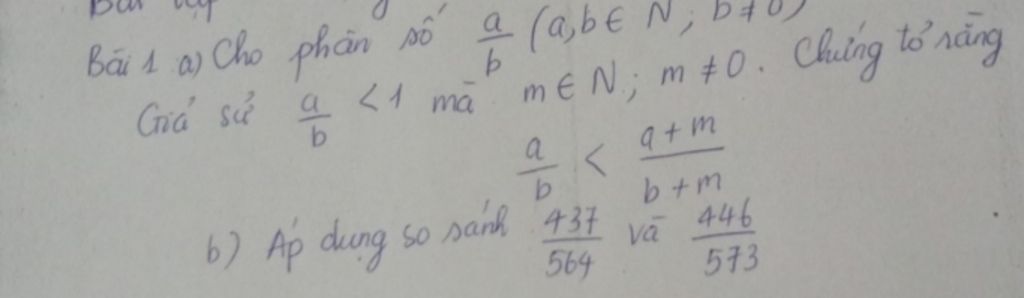 Bài tập
Bài 1 a) Cho phân số a/b (a,b ∈ N; b ≠ 0)
Giả sử a/b < 1 mà m ∈ N; m ≠ 0. Chứng tỏ rằng
a/b < a+m/b+m
b) Áp dụng so sánh 437/564 và 446/573